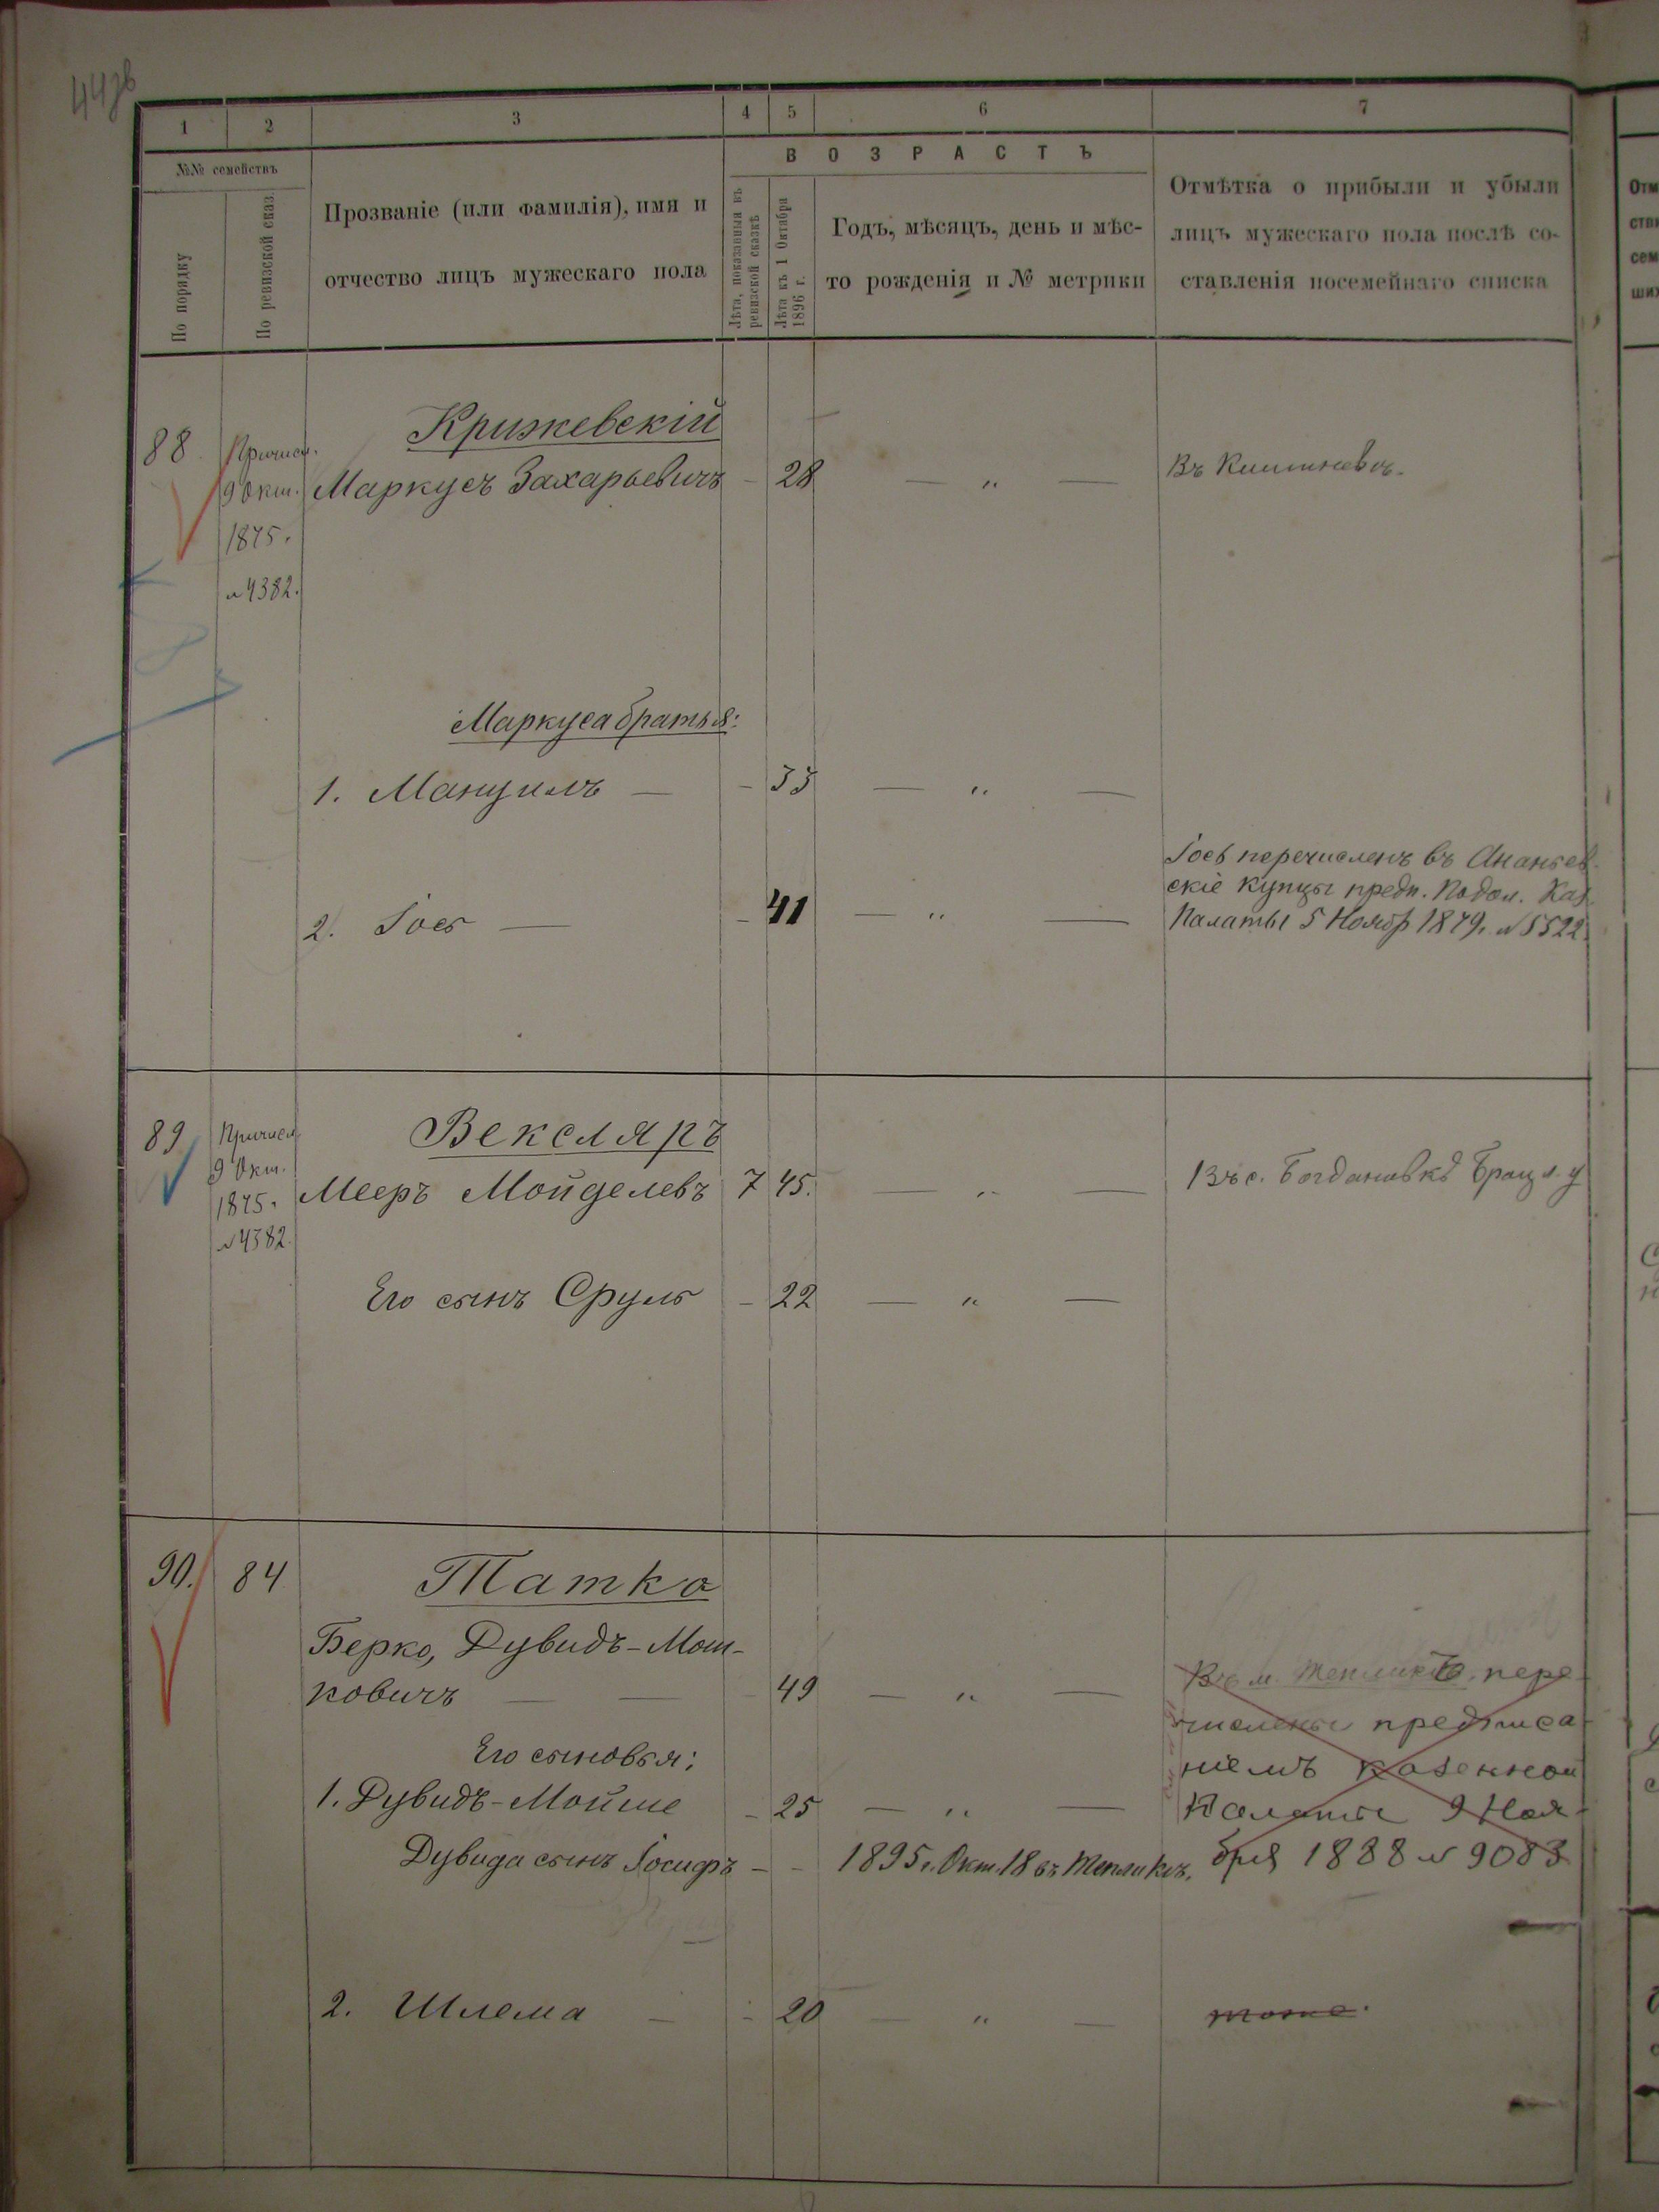 44зв
1 2 3 4 5 6 7
№№ семействъ
По порядку
По ревизской сказ.
Прозваніе (или фамилія), имя и
отчество лицъ мужескаго пола
ВОЗРАСТЪ
Лѣта, показанныя въ
ревизской сказкѣ
Лѣта къ 1 Октября
1896 г.
Годъ, мѣсяцъ, день и мѣс-
то рожденія и № метрики
Отмѣтка о прибыли и убыли
лицъ мужескаго пола послѣ со-
ставленія посемейнаго списка
88.
Причисл.
9 Окт.
1875.
№4382.
Крижевскій
Маркусъ Захарьевичъ - 28 — „ —
Въ Кишиневѣ.
Маркуса братья:
1. Мануилъ — - 33 — „ —
2. Іось — - 41 — „ —
Іось перечисленъ въ Ананьев-
скіе купцы предп. Подол. Каз.
Палаты 5 Ноябр 1879. №5522.
89.
Причисл.
9 Окт.
1875.
№4382.
Вексляръ
Мееръ Мойделевъ 7 45. — „ —
Въ с. Богдановкѣ Брацл. у
Его сынъ Сруль - 22 — „ —
90. 84
Татко
Берко, Дувидъ-Мош-
ковичъ — — - 49 — „ —
Въ м. Тепликѣ. пере-
числены предписа-
ніемъ Казенной
Палаты 9 Ноя-
бря 1888 №9083
Его сыновья:
1. Дувидъ-Мойше - 25 — „ —
Дувида сынъ Іосифъ - - 1895 г. Окт. 18 въ Тепликѣ.
2. Шлема — - 20 — „ —
тоже.